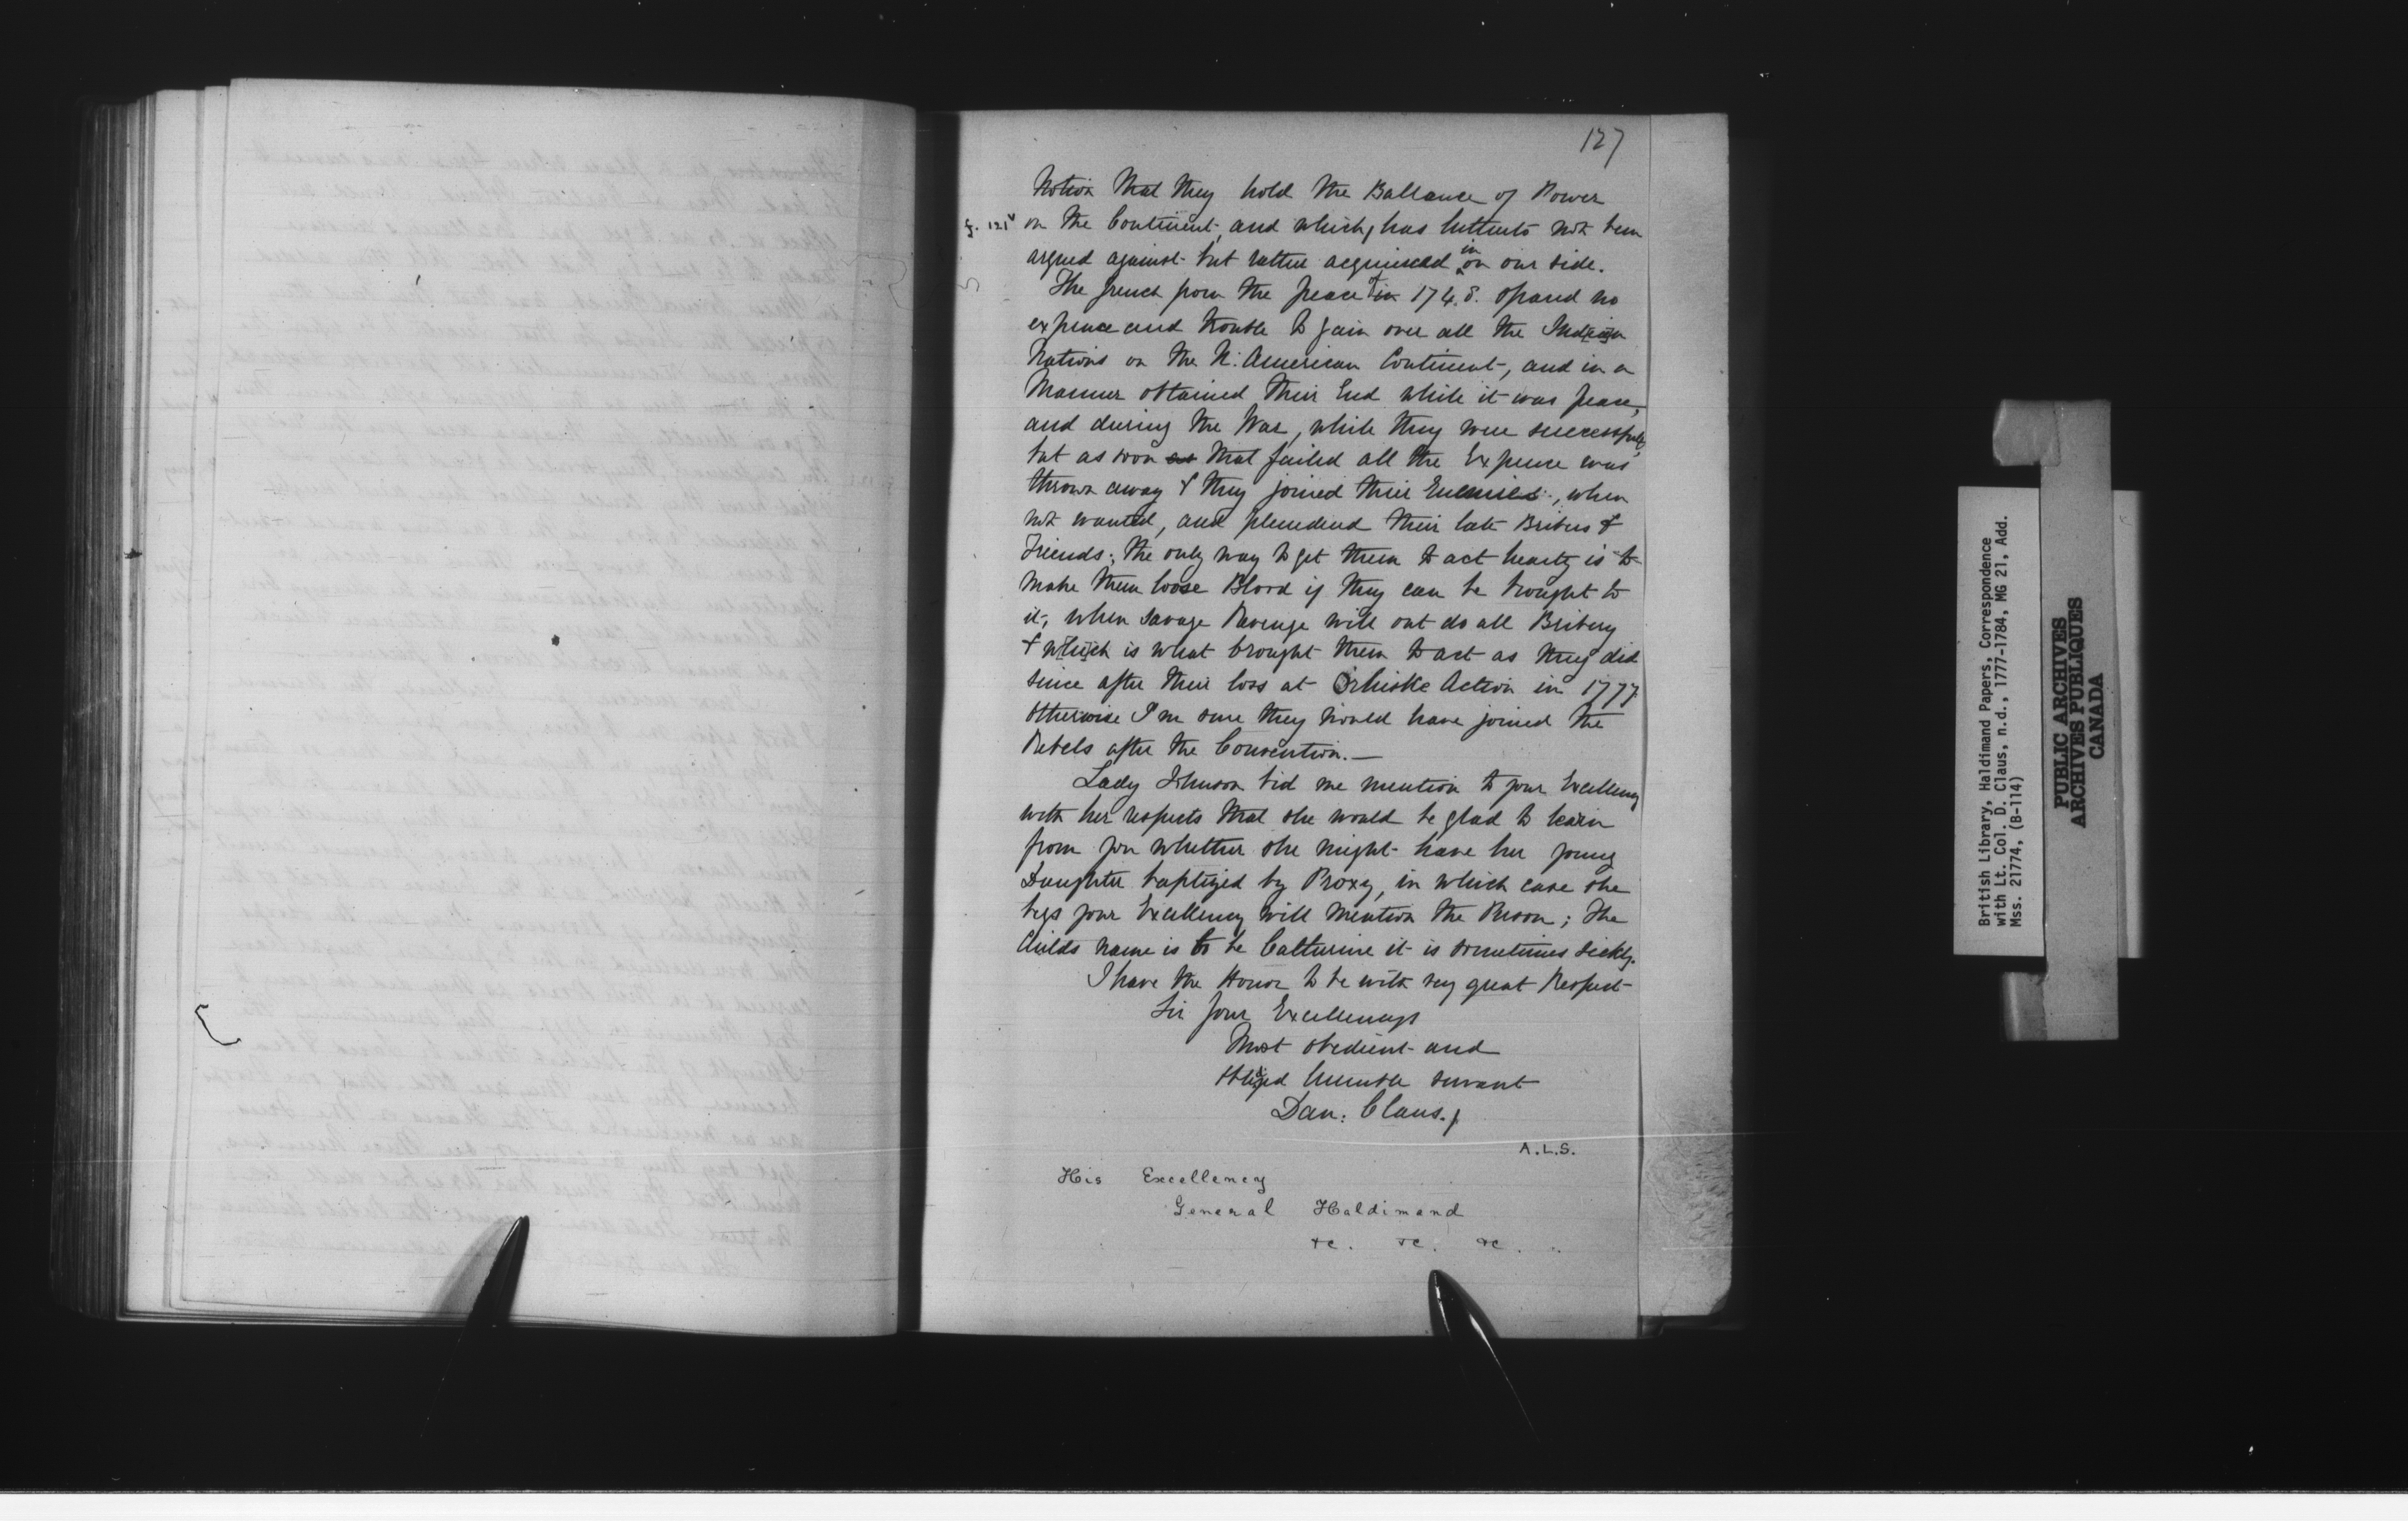 127
Notion that they hold the Ballance of Power
f. 121v on the Continent, and which, has hitherto not been
argued against but rather acquiesced in on our side.
The french from the peace of in 174.8. spared no
expence and trouble to gain over all the Indian
Nations on the N. American Continent, and in a
Manner obtained their End while it was peace,
and during the War, while they were successfull,
but as soon as that failed all the Expence was
thrown away & they joined their Enemies, when
not wanted, and plundered their late Bribers &
Friends; the only way to get them to act hearty is to
make them loose Blood if they can be brought to
it, when savage Revenge will out do all Bribery
& which is what brought them to act as they did
since after their loss at Orhiske Action in 1777
otherwise I'm sure they would have joined the
Rebels after the Convention.—
Lady Johnson bid me mention to your Excellency
with her respects that she would be glad to learn
from you whether she might have her young
Daughter baptized by Proxy, in which case she
begs your Excellency will mention the Person; The
Childs name is to be Catherine it is sometimes sickly.
I have the Honor to be with very great Respect
Sir your Excellencys
Most obedient and
obliged humble servant
Dan: Claus.
A.L.S.
His Excellency
General Haldimand
&c. &c. &c.
British Library, Haldimand Papers, Correspondence
with Lt. Col. D. Claus, n.d., 1777-1784, MG 21, Add.
Mss. 21774, (B-114)
PUBLIC ARCHIVES
ARCHIVES PUBLIQUES
CANADA